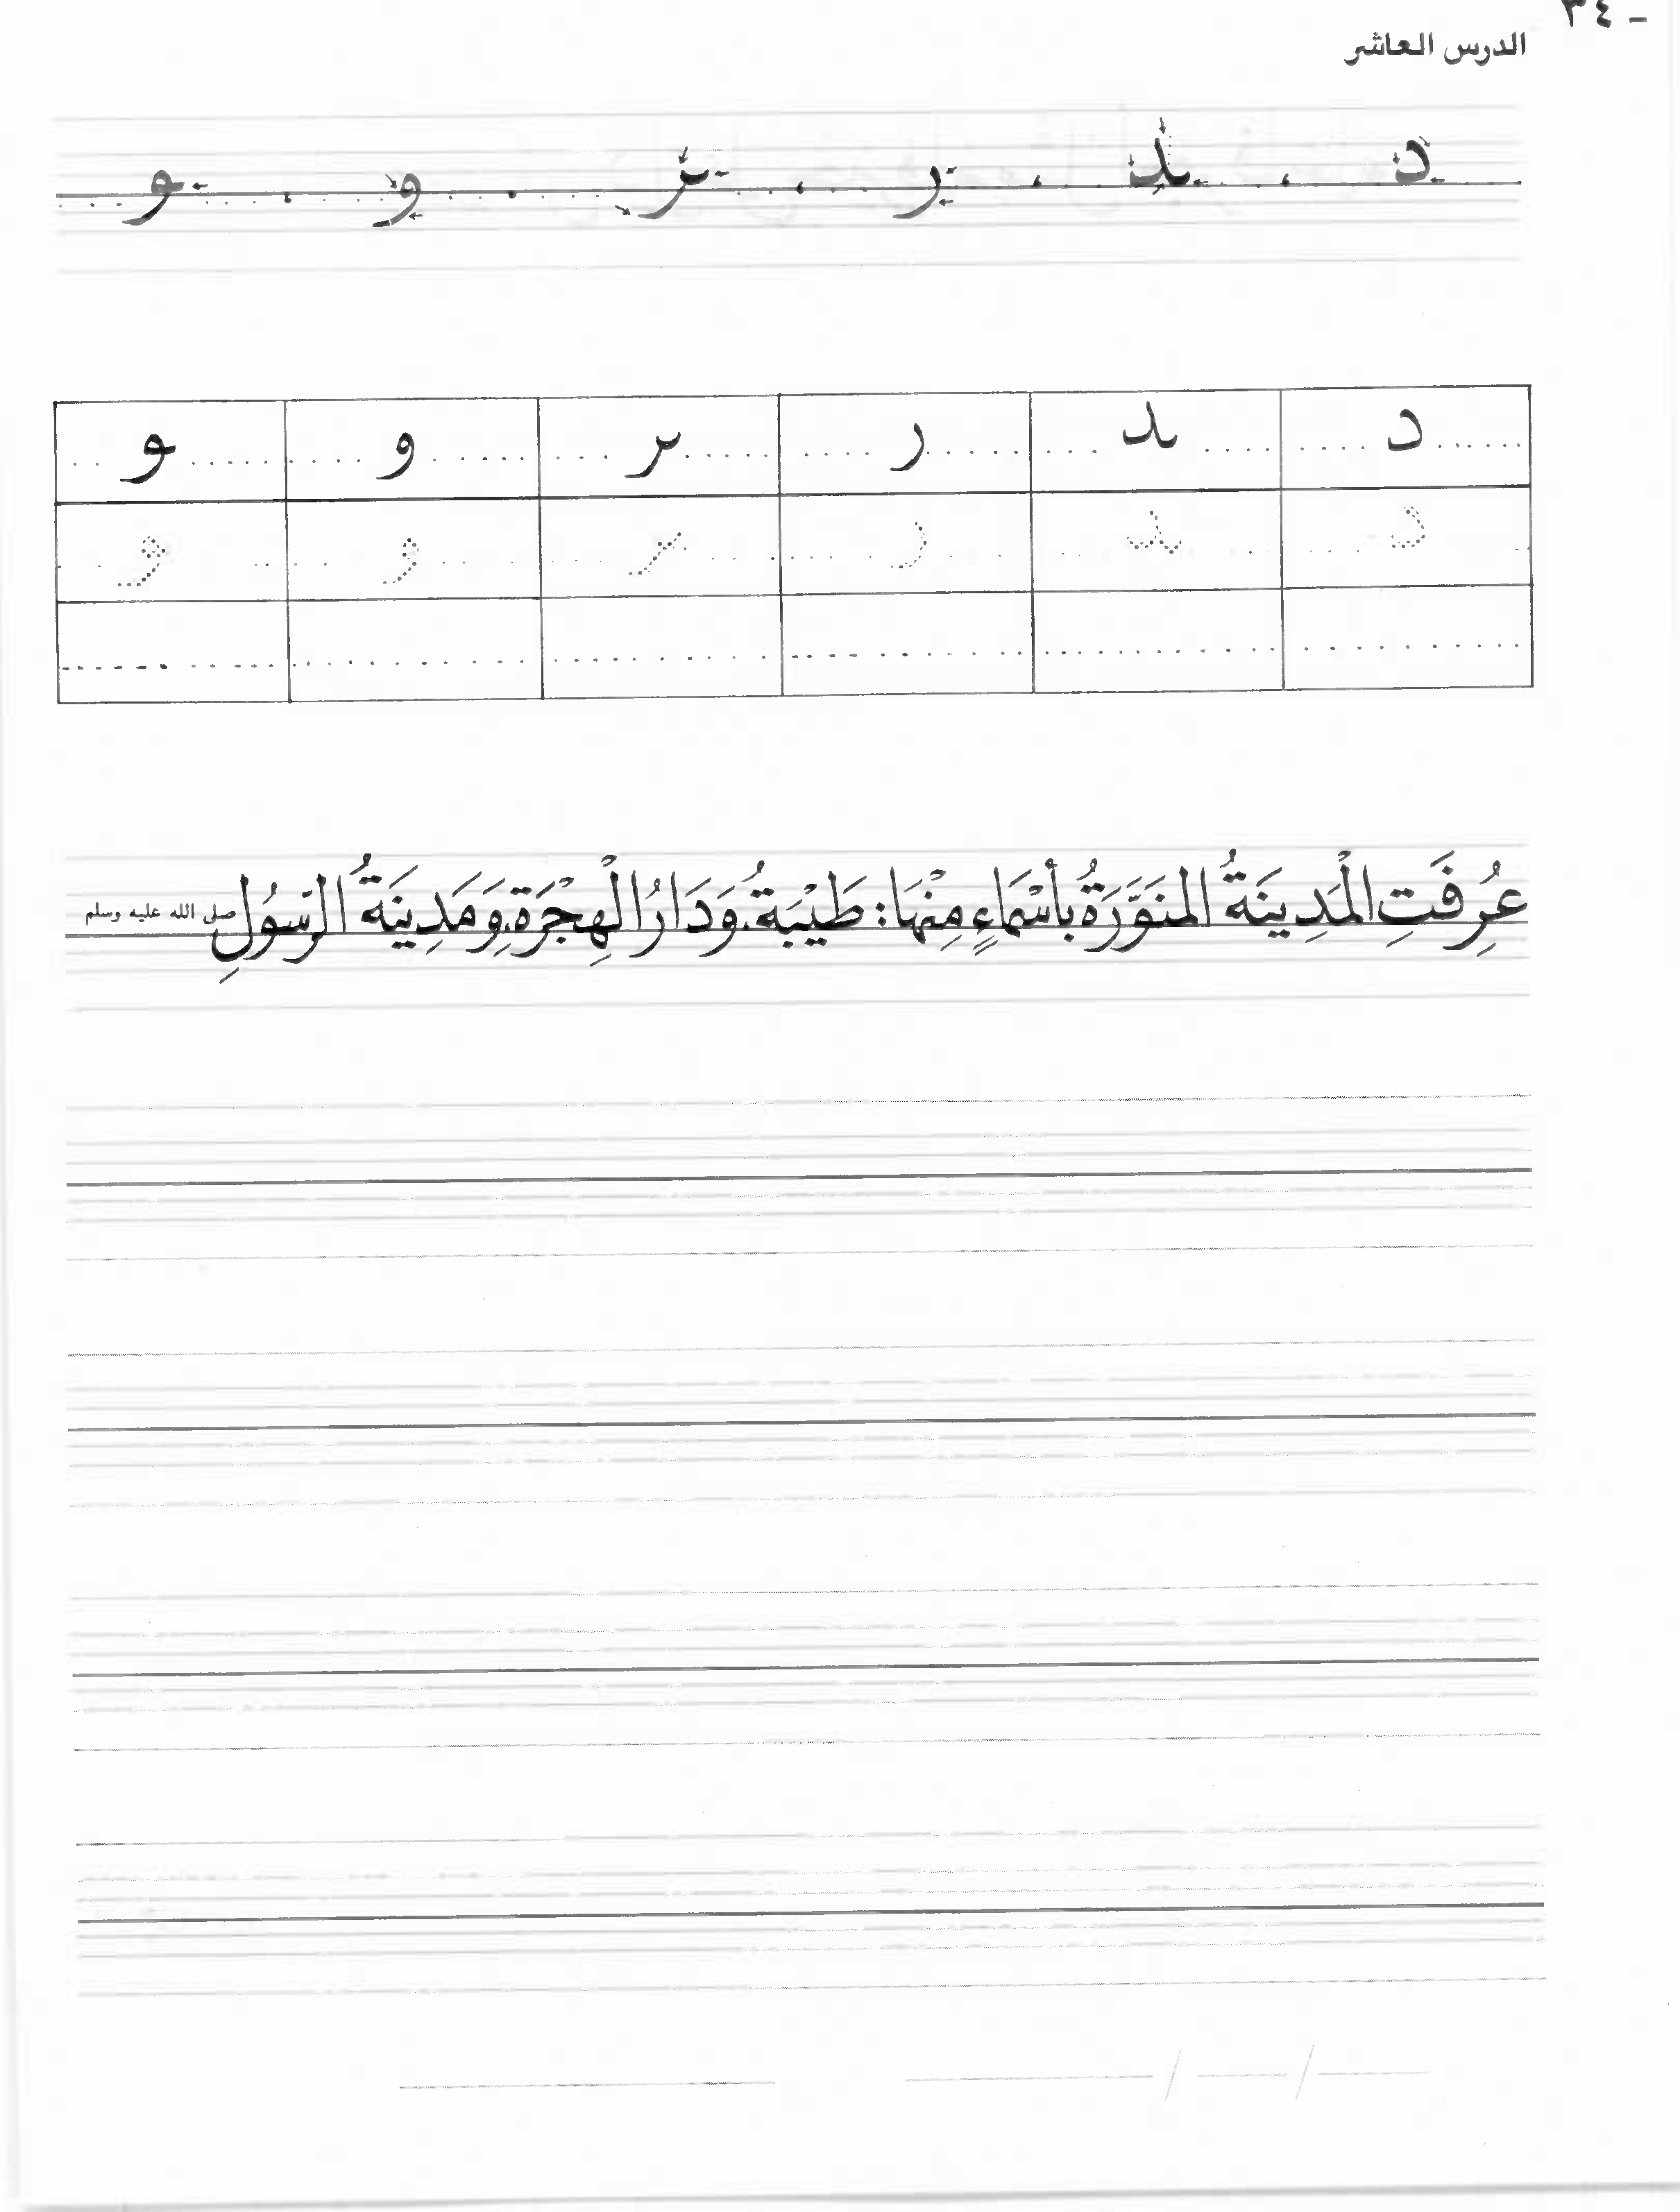 - ٣٤
الدرس العاشر
د ، ـد ، ر ، ـر ، و ، ـو
د ـد ر ـر و ـو
د ـد ر ـر و ـو
عُرِفَتِ الْمَدِينَةُ الْمنَوَّرَةُ بأَسْمَاءٍ مِنْهَا: طَيْبَةُ. وَدَارُ الْهِجْرَةِ. وَمَدِينَةُ الرَّسُولِ صلى الله عليه وسلم